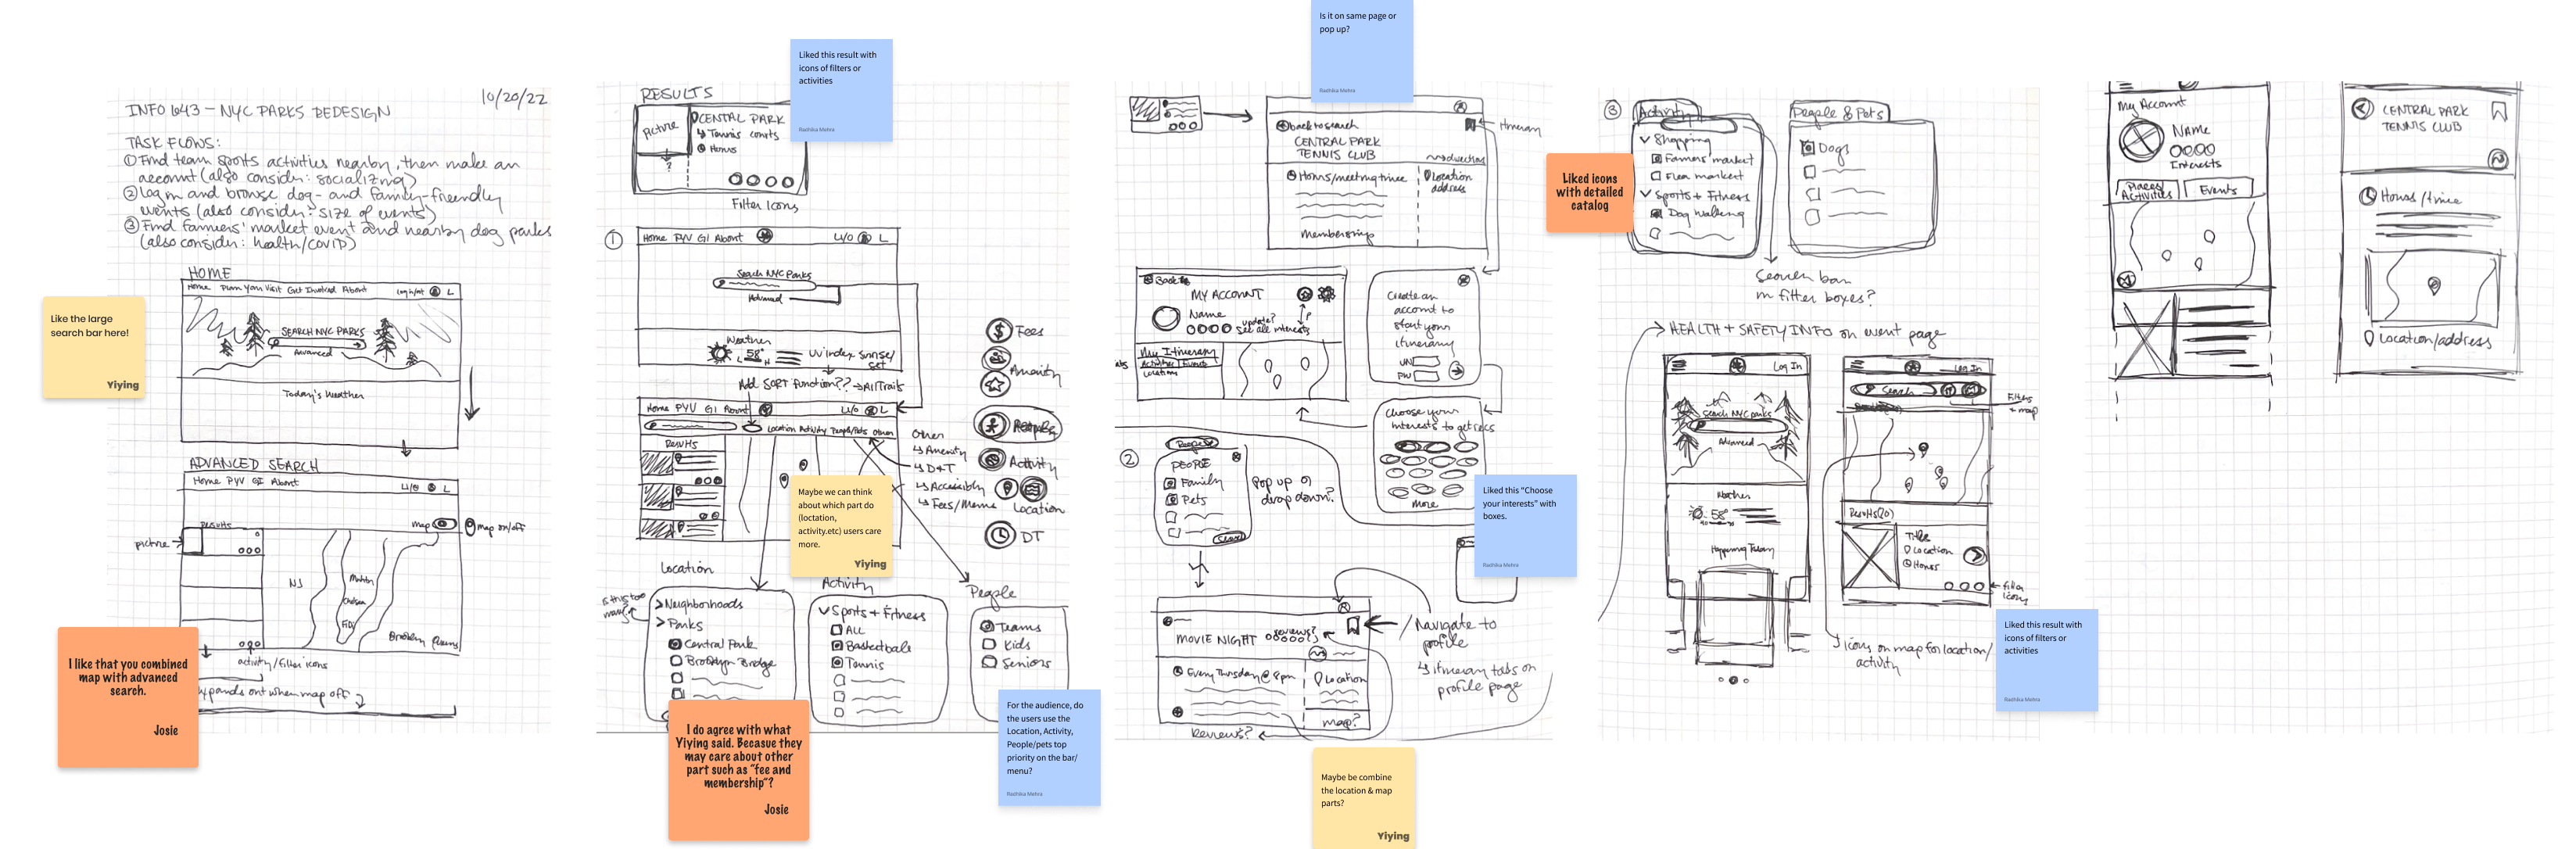 10/20/22
INFO 643 – NYC PARKS REDESIGN
TASK FLOWS:
① Find team sports activities nearby, then make an
account (also consider: socializing)
② Log in and browse dog- and family-friendly
events (also consider: size of events)
③ Find farmers' market event and nearby dog parks
(also consider: health/COVID)
HOME
Home Plan Your Visit Get Involved About
L
SEARCH NYC PARKS
Advanced
Today's Weather
Like the large
search bar here!
Yiying
ADVANCED SEARCH
Home PYV GI About
L
RESULTS
map
map on/off
picture
NJ
Brooklyn
activity/filter icons
expands out when map off
I like that you combined
map with advanced
search.
Josie
RESULTS
picture
?
CENTAL PARK
↳ Tennis courts
Hours
Filter Icons
Liked this result with
icons of filters or
activities
Radhika Mehra
①
Home PYV GI About
L/O
L
Search NYC Parks
Advanced
Weather
58°
L
H
UV index sunrise/
set
Add SORT function?? → AllTrails
Home PYV GI About
L/O
L
Location Activity People/Pets Other
RESULTS
Other
↳ Amenity
↳ D&T
↳ Accessibly
↳ Fees/Mems
Fees
Amenity
Activity
Location
DT
Maybe we can think
about which part do
(loctation,
activity.etc) users care
more.
Yiying
Location
is this too
many?
> Neighborhoods
> Parks
Central Park
Brooklyn Bridge
Activity
Sports + Fitness
ALL
Basketball
Tennis
People
Teams
Kids
Seniors
I do agree with what
Yiying said. Becasue they
may care about other
part such as "fee and
membership"?
Josie
For the audience, do
the users use the
Location, Activity,
People/pets top
priority on the bar/
menu?
Radhika Mehra
Is it on same page or
pop up?
Radhika Mehra
back to search
CENTRAL PARK
TENNIS CLUB
Itinerary
directions
Hours/meeting times
Location
address
Memberships
Back
MY ACCOUNT
Name
update?
see all interests
My Itinerary
Activities
Events
Locations
Create an
account to
start your
itinerary
UN
PW
Choose your
interests to get recs
more
②
People
PEOPLE
Family
Pets
Pop up or
drop down?
Liked this "Choose
your interests" with
boxes.
Radhika Mehra
MOVIE NIGHT
reviews?
Every Thursday @ 8pm
Location
map?
Reviews?
Navigate to
profile
↳ itinerary tabs on
profile page
Maybe be combine
the location & map
parts?
Yiying
③
Activity
Shopping
Farmers' market
Flea market
Sports + Fitness
Dog walking
People & Pets
Dogs
Liked icons
with detailed
catalog
Search bar
in filter boxes?
HEALTH + SAFETY INFO on event page
Log In
Search NYC parks
Advanced
Weather
58°
Happening Today
Log In
Search
Filters
+ map
Results(20)
Title
Location
Hours
filter
icons
icons on map for location/
activity
Liked this result with
icons of filters or
activities
Radhika Mehra
My Account
NAME
Interests
Places
Activities
Events
CENTRAL PARK
TENNIS CLUB
Hours/time
Location/address